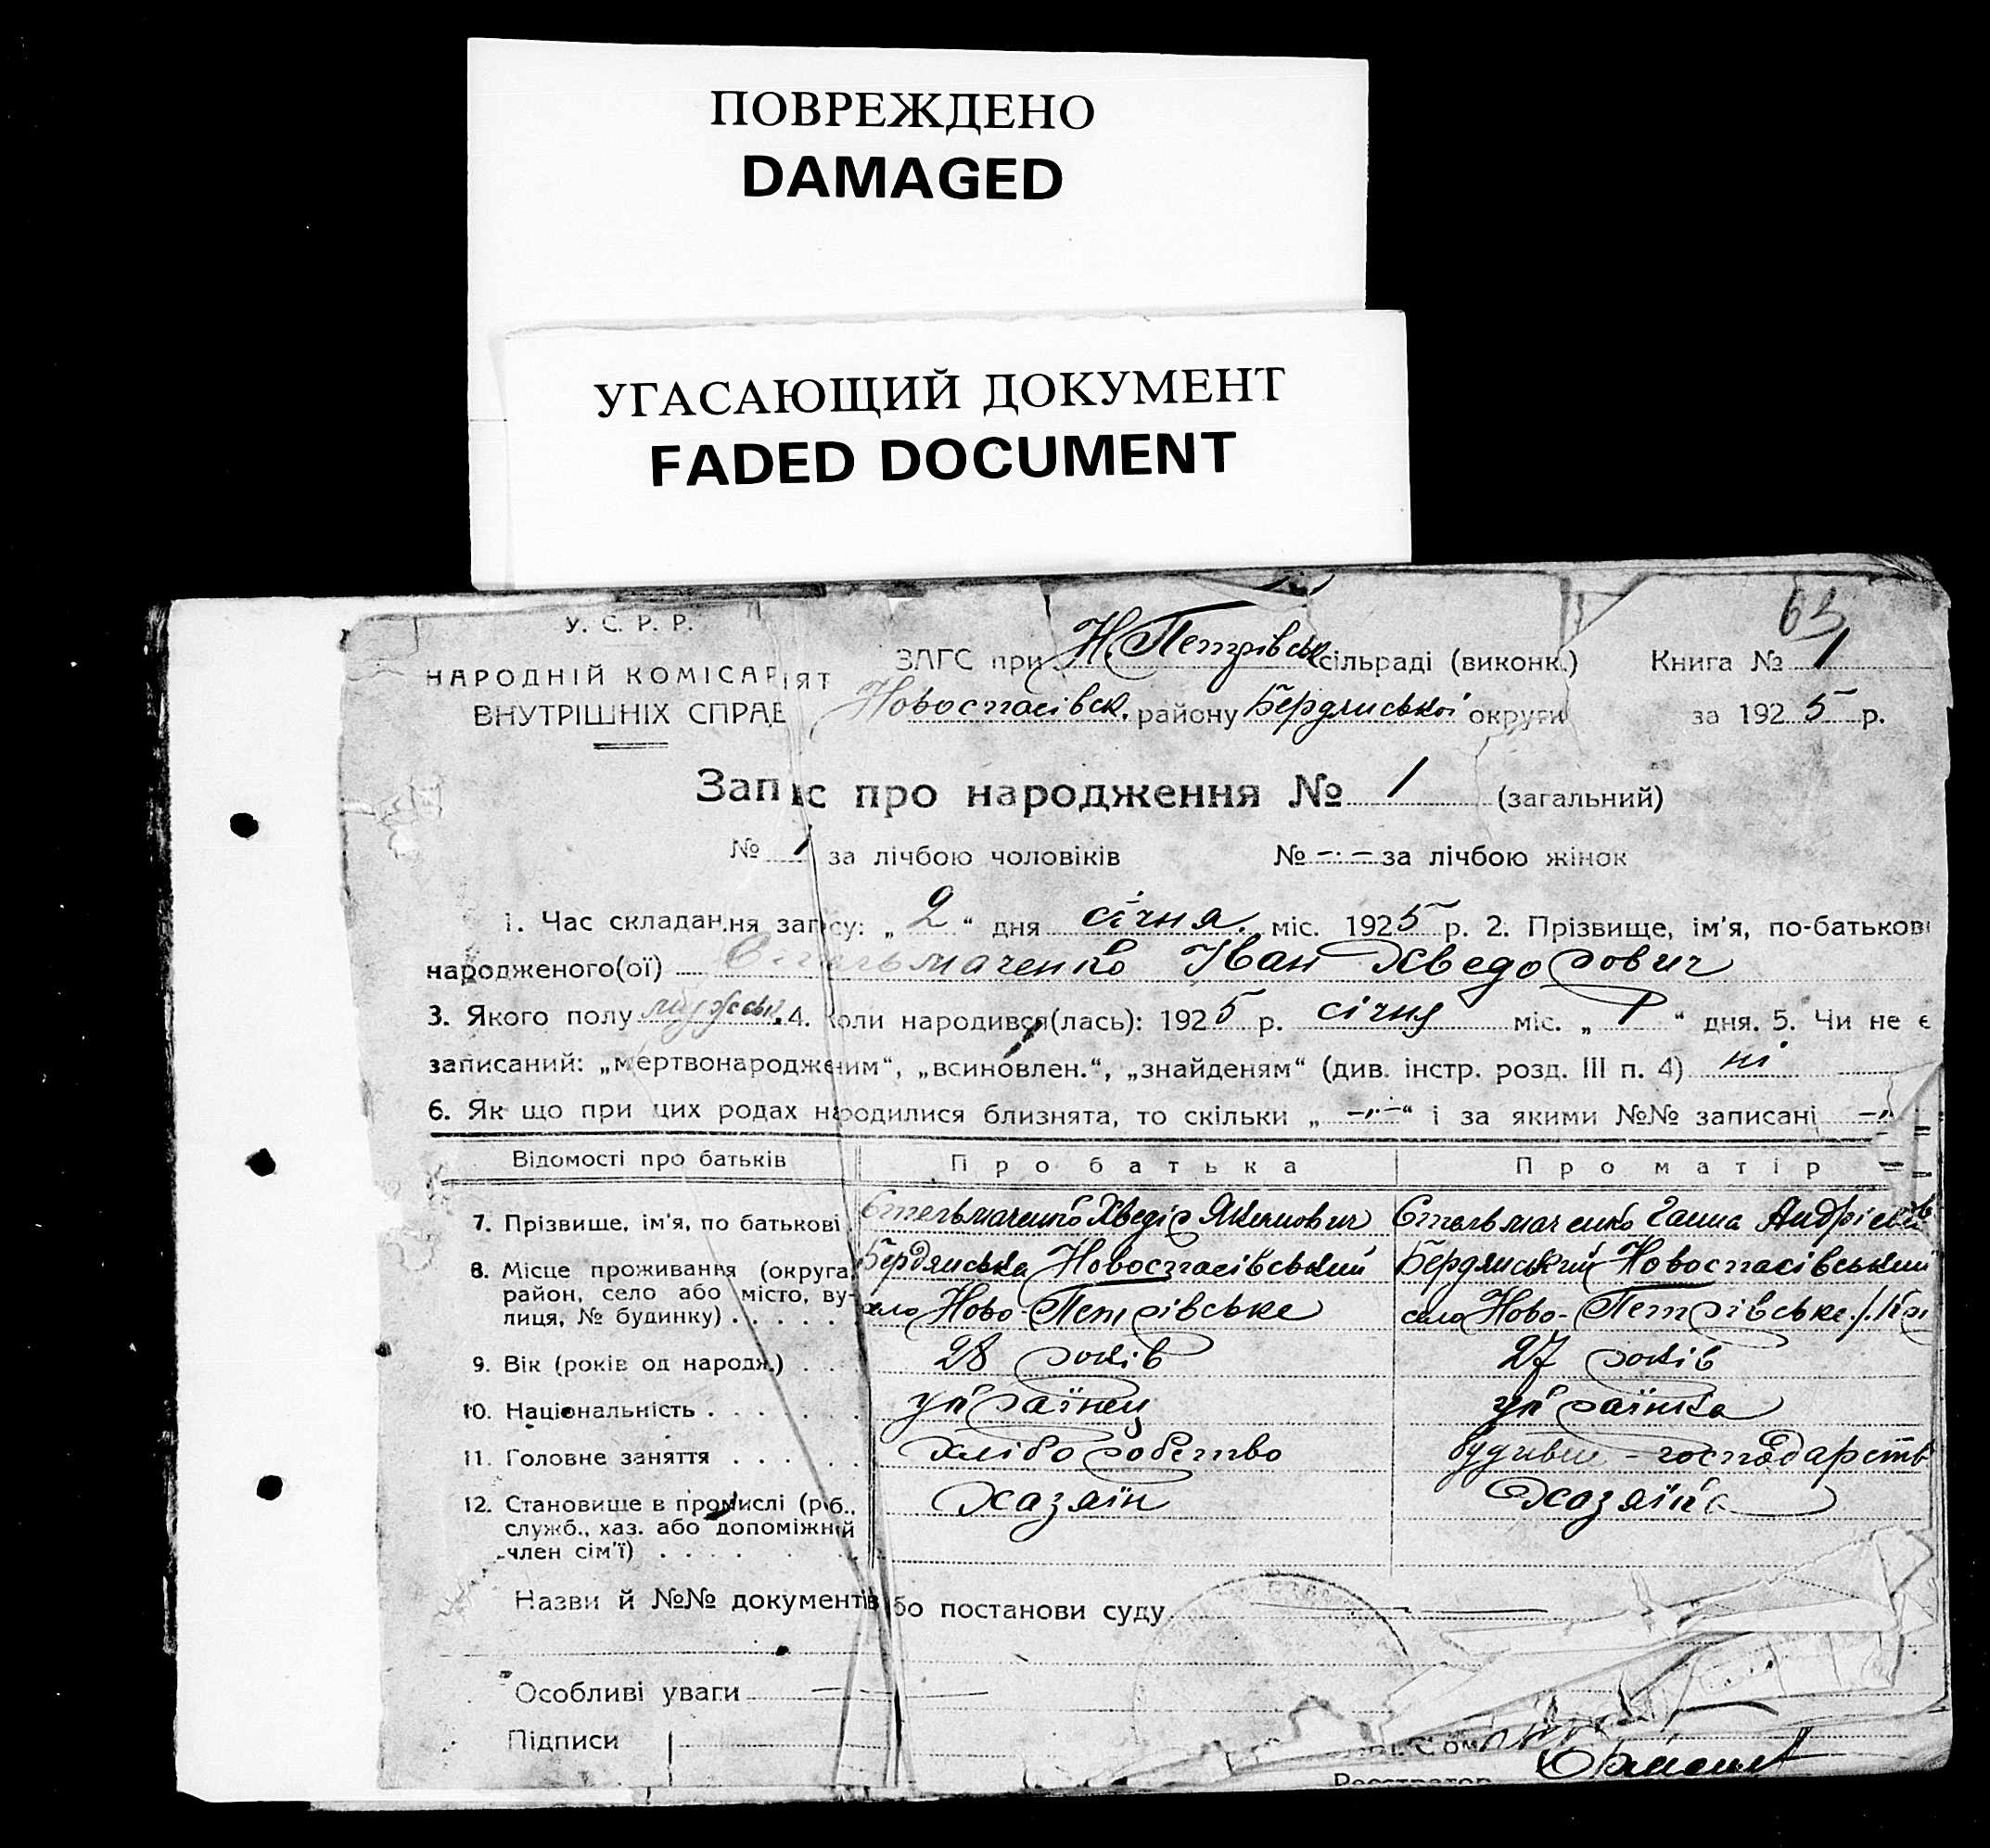 ПОВРЕЖДЕНО
DAMAGED
УГАСАЮЩИЙ ДОКУМЕНТ
FADED DOCUMENT
63
У. С. Р. Р.
НАРОДНІЙ КОМІСАРІЯТ
ВНУТРІШНІХ СПРАВ
ЗАГС при Н. Петрівськ сільраді (виконк.) Книга № 1
Новоспасівск. району Бердянської округи за 1925 р.
Запис про народження № 1 (загальний)
№ 1 за лічбою чоловіків № -·- за лічбою жінок
1. Час складання запісу: „2“ дня січня міс. 1925 р. 2. Прізвище, ім'я, по-батькові
народженого(ої) Стельмаченко Іван Хведорович
3. Якого полу мужськ. 4. Коли народився(лась): 1925 р. січня міс. „1“ дня. 5. Чи не є
записаний: „мертвонародженим“, „всиновлен.“, „знайденям“ (див. інстр. розд. III п. 4) ні
6. Як що при цих родах народилися близнята, то скільки „-„-“ і за якими №№ записані -„
Відомості про батьків Про батька Про матір
7. Прізвище, ім'я, по батькові Стельмаченко Хведір Якимович Стельмаченко Ганна Андріевів
8. Місце проживання (округа, Бердянська Новоспасівський Бердянський Новоспасівський
район, село або місто, ву- село Ново-Петрівське село Ново-Петрівське
лиця, № будинку) . . . . .
9. Вік (років од народж.) . . 28 років 27 років
10. Національність . . . . . . українец українка
11. Головне заняття . . . . . хліборобство господарств
12. Становище в промислі (роб., Хазяїн Хазяїка
служб., хаз. або допоміжний
член сім'ї) . . . . .
Назви й №№ документів або постанови суду
Особливі уваги
Підписи
Реєстратор